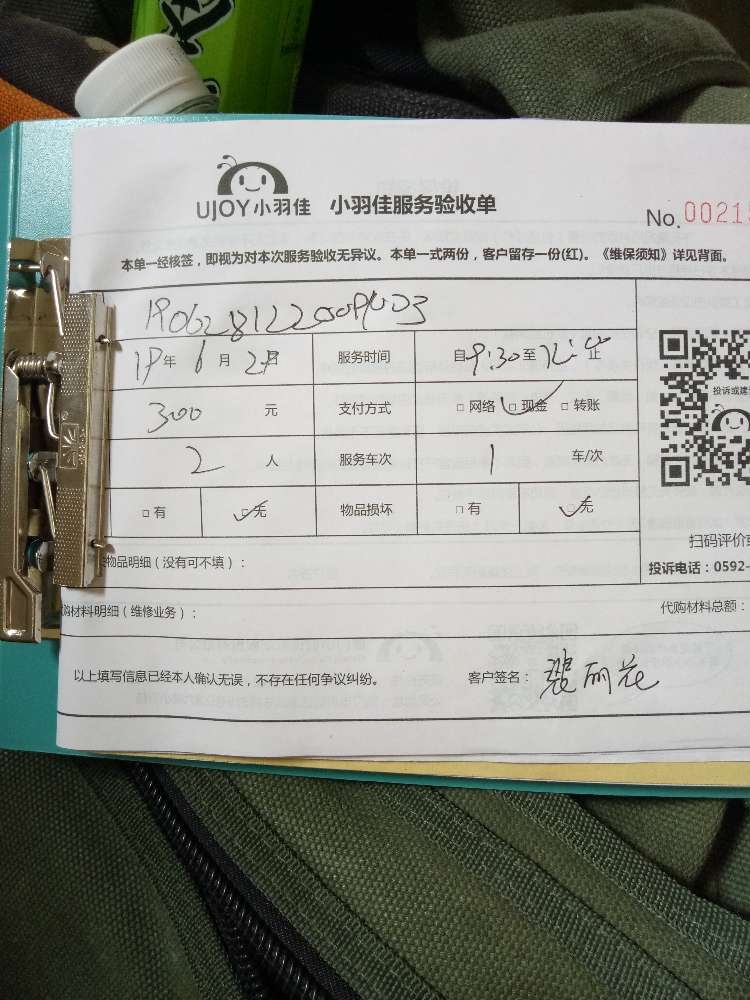 UJOY小羽佳 小羽佳服务验收单
No. 0021
本单一经核签，即视为对本次服务验收无异议。本单一式两份，客户留存一份(红)。《维保须知》详见背面。
19年 6月 29日 服务时间 自9:30至 止
300 元 支付方式 □ 网络 □ 现金 □ 转账
投诉或建
2 人 服务车次 1 车/次
□ 有 □ 无 物品损坏 □ 有 □ 无
扫码评价
物品明细（没有可不填）：
投诉电话：0592-
购材料明细（维修业务）： 代购材料总额：
以上填写信息已经本人确认无误，不存在任何争议纠纷。 客户签名： 丽花